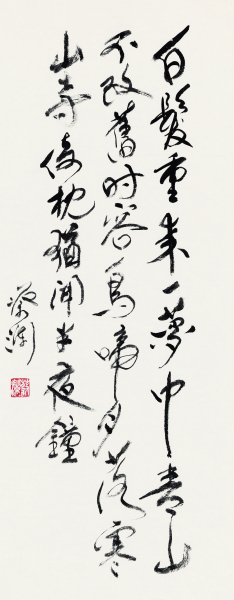 白髮重來一夢中青山
不改舊時容烏啼月落寒
山寺倚枕猶聞半夜鐘
蔡瀾